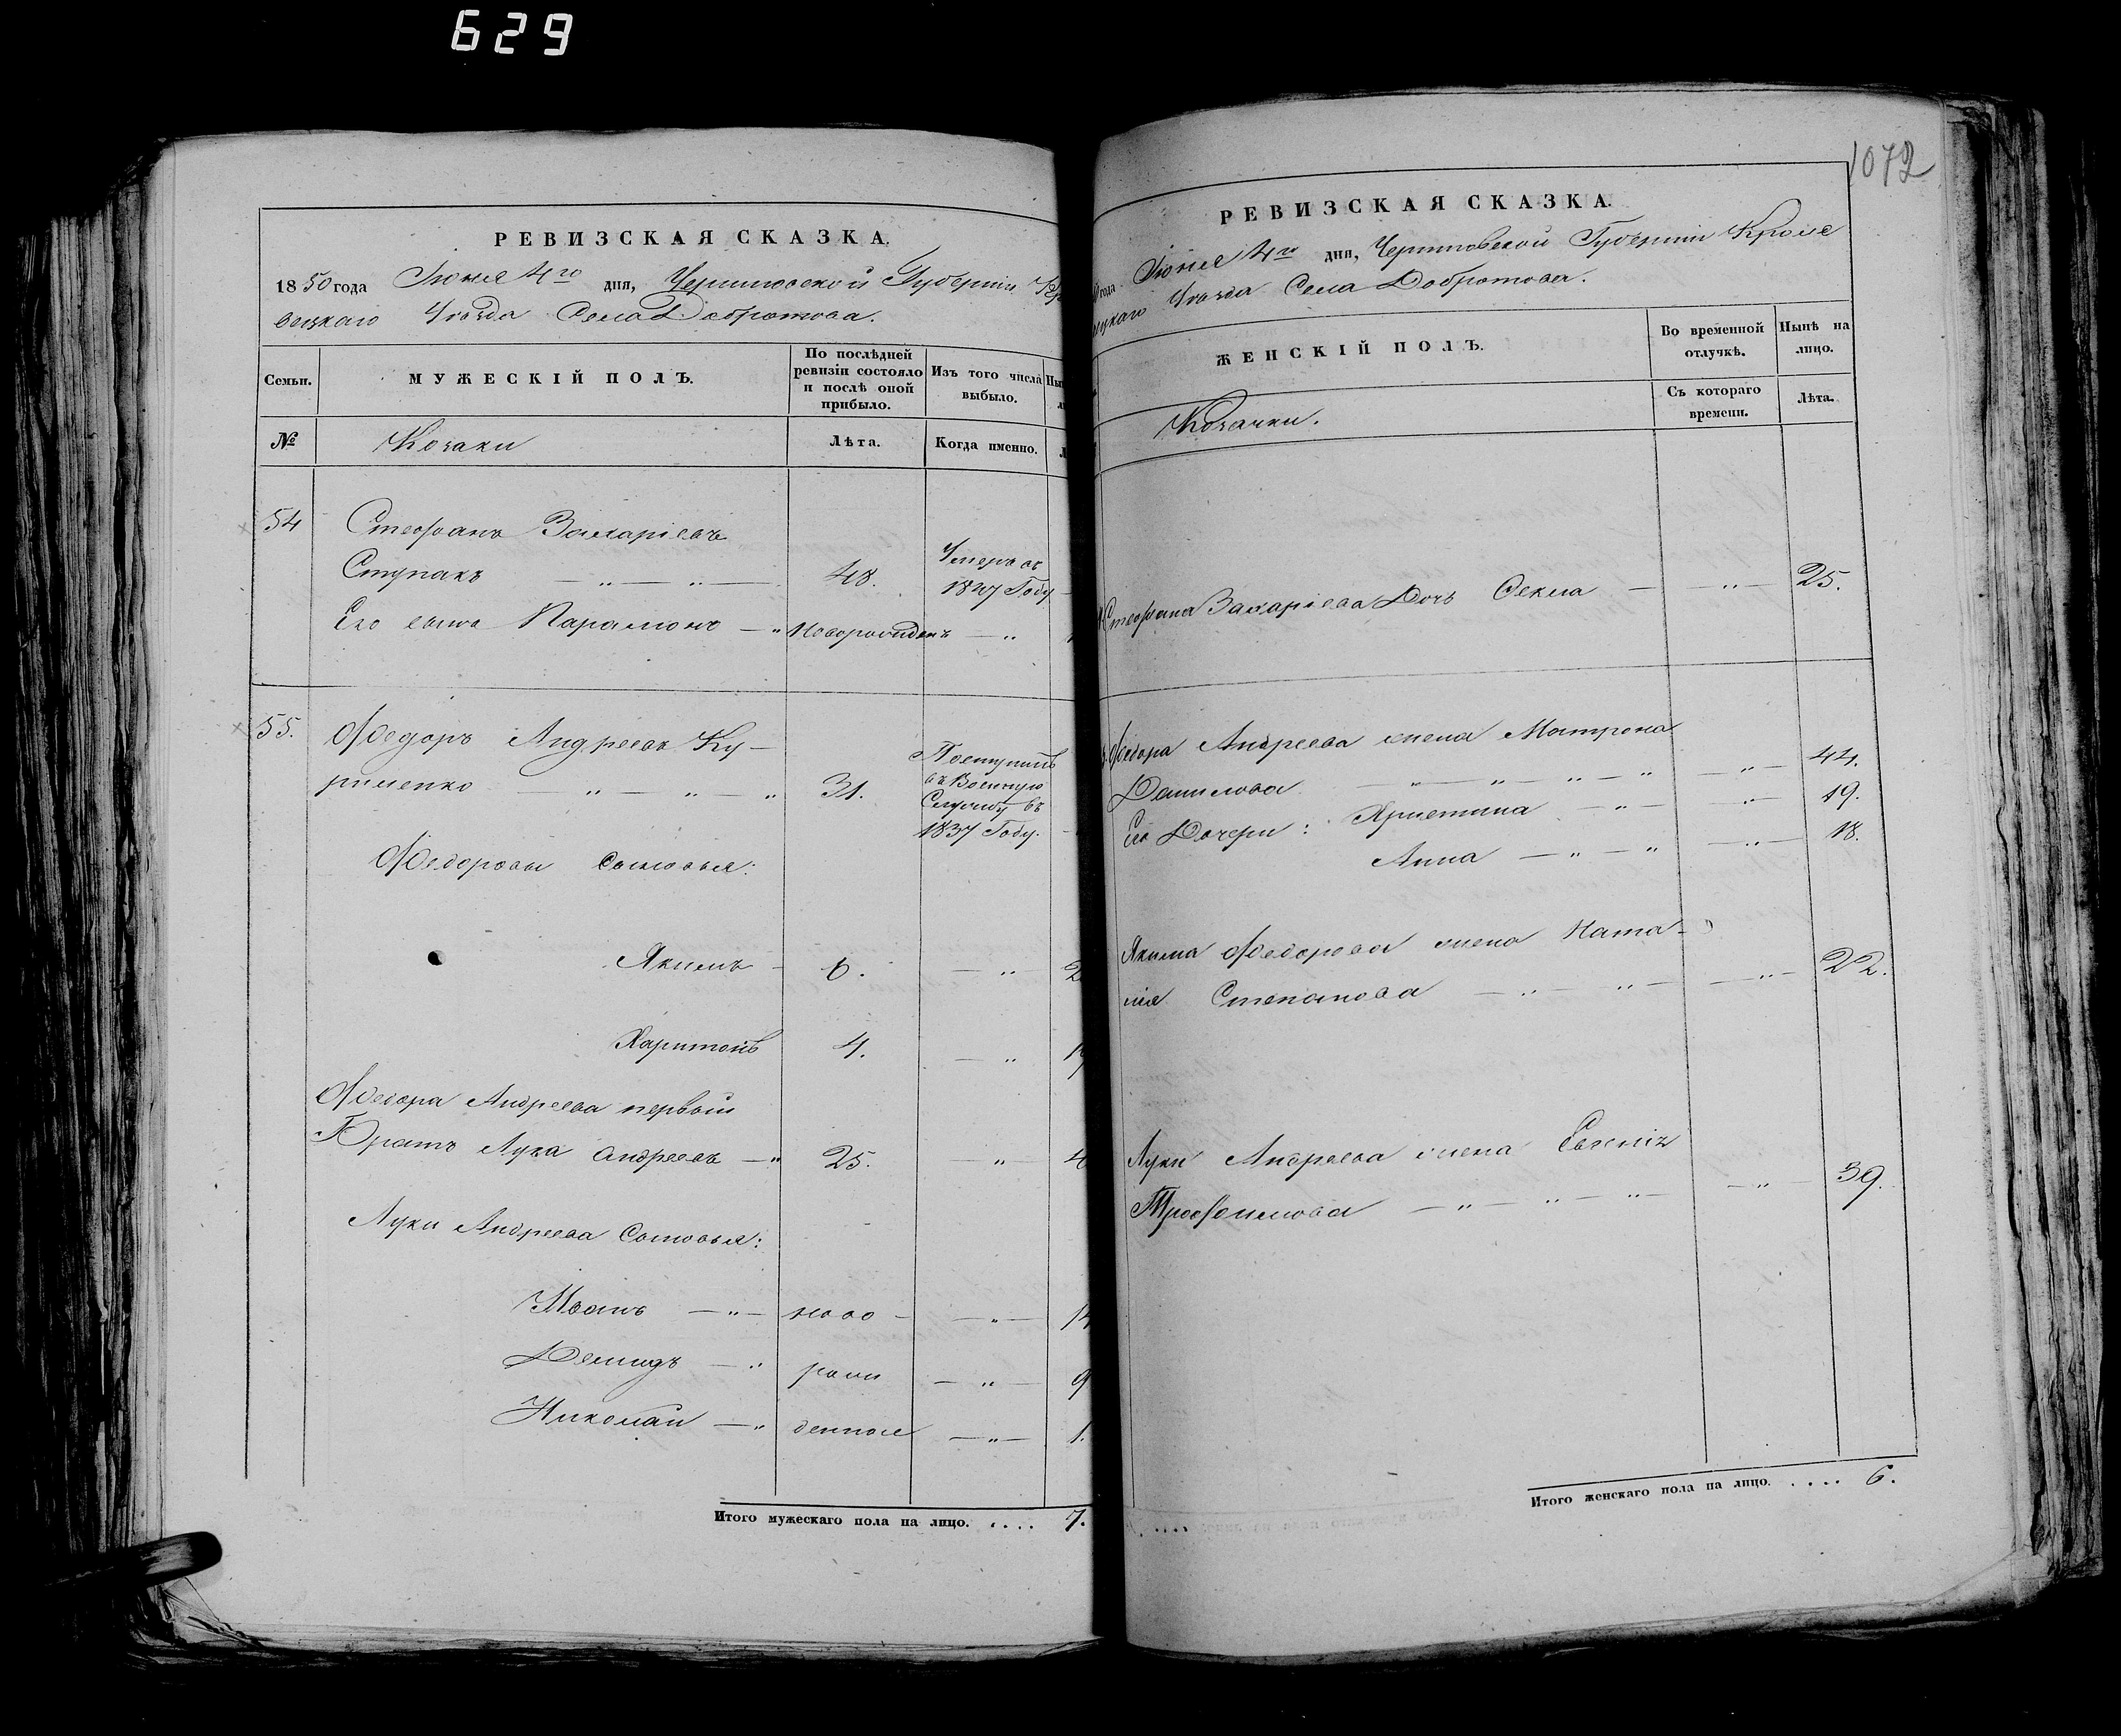 629
РЕВИЗСКАЯ СКАЗКА.
1850 года Іюня 4го дня, Черниговской Губерніи Кро
вецкаго Уѣзда Села Добротова.
Семьи.
МУЖЕСКІЙ ПОЛЪ.
По послѣдней
ревизіи состояло
и послѣ оной
прибыло.
Изъ того числа
выбыло.
№
Козаки
Лѣта.
Когда именно.
54
Стефанъ Захаріевъ
Ступакъ — „ — „ — 48. Умеръ въ
1847 Году
Его сынъ Парамонъ — „ Новорожденъ — „
55.
Федоръ Андреевъ Ку-
рименко — „ — „ — „ 31.
Поступилъ
въ Военную
Службу въ
1837 Году.
Федоровы Сыновья:
Якимъ — 6. — „ — 2
Харитонъ 4. — „ — 1
Федора Андреева первый
Братъ Лука Андреевъ — „ 25. — „ — 4
Луки Андреева Сыновья:
Иванъ — „ — ново — — „ — 14
Демидъ — „ рож — „ — 9
Николай — „ денные — „ — 1.
Итого мужескаго пола на лицо. .... 7.
1072
РЕВИЗСКАЯ СКАЗКА.
года Іюня 4го дня, Черниговской Губерніи Кроле
вецкаго Уѣзда Села Добротова.
ЖЕНСКІЙ ПОЛЪ.
Во временной
отлучкѣ.
Нынѣ на
лицо.
Козачки.
Съ котораго
времени.
Лѣта.
Стефана Захаріева Дочь Фекла — — „ — 25.
Федора Андреева жена Матрона
Данилова — „ — „ — „ — „ — „ — 44.
Его Дочери: Христина — „ — „ — 19.
Анна — „ — „ — „ — 18.
Якима Федорова жена Ната-
лія Степанова — „ — „ — — „ — 22.
Луки Андреева жена Евгенія
Трофимова — „ — „ — „ — — „ — 39.
Итого женскаго пола на лицо. .... 6.